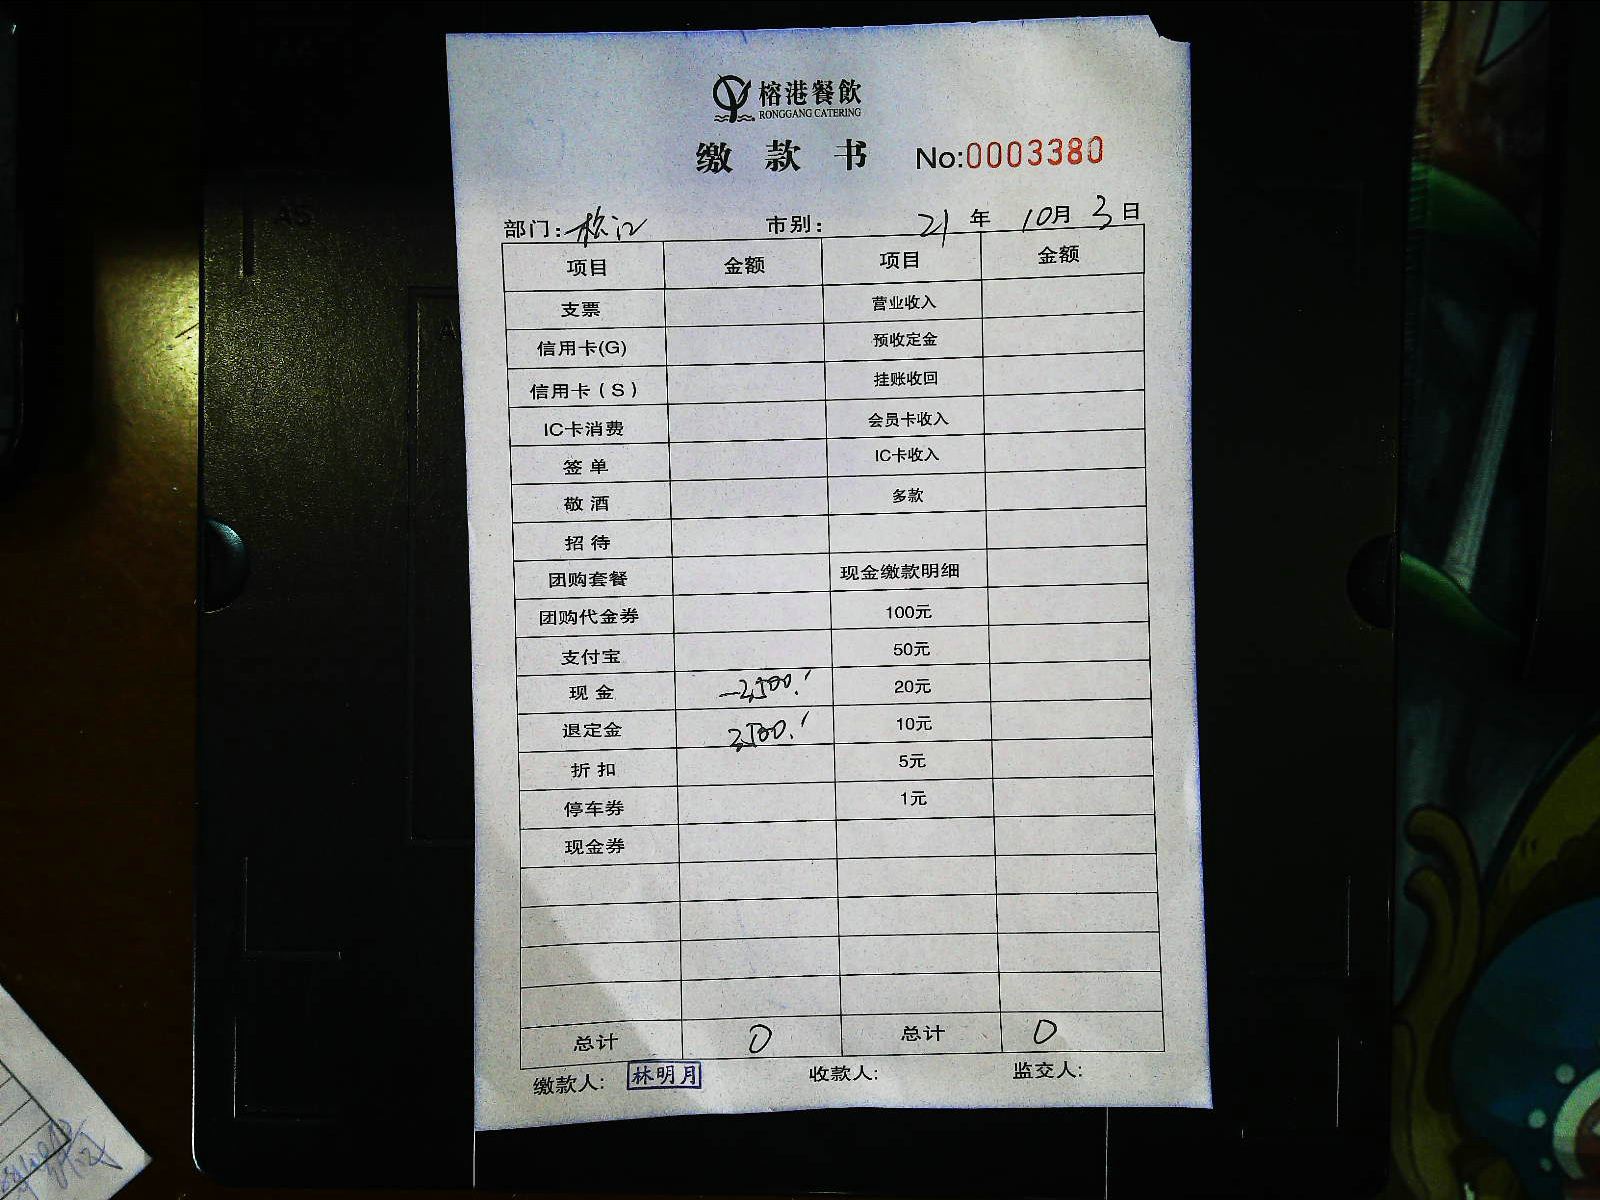 榕港餐飲
RONGGANG CATERING
缴款书 No:0003380
部门:松江 市别: 21年10月3日
项目 金额 项目 金额
支票 营业收入
信用卡(G) 预收定金
信用卡(S) 挂账收回
IC卡消费 会员卡收入
签单 IC卡收入
敬酒 多款
招待
团购套餐 现金缴款明细
团购代金券 100元
支付宝 50元
现金 -2,500.' 20元
退定金 2,500.' 10元
折扣 5元
停车券 1元
现金券
总计 0 总计 0
缴款人: 林明月 收款人: 监交人: